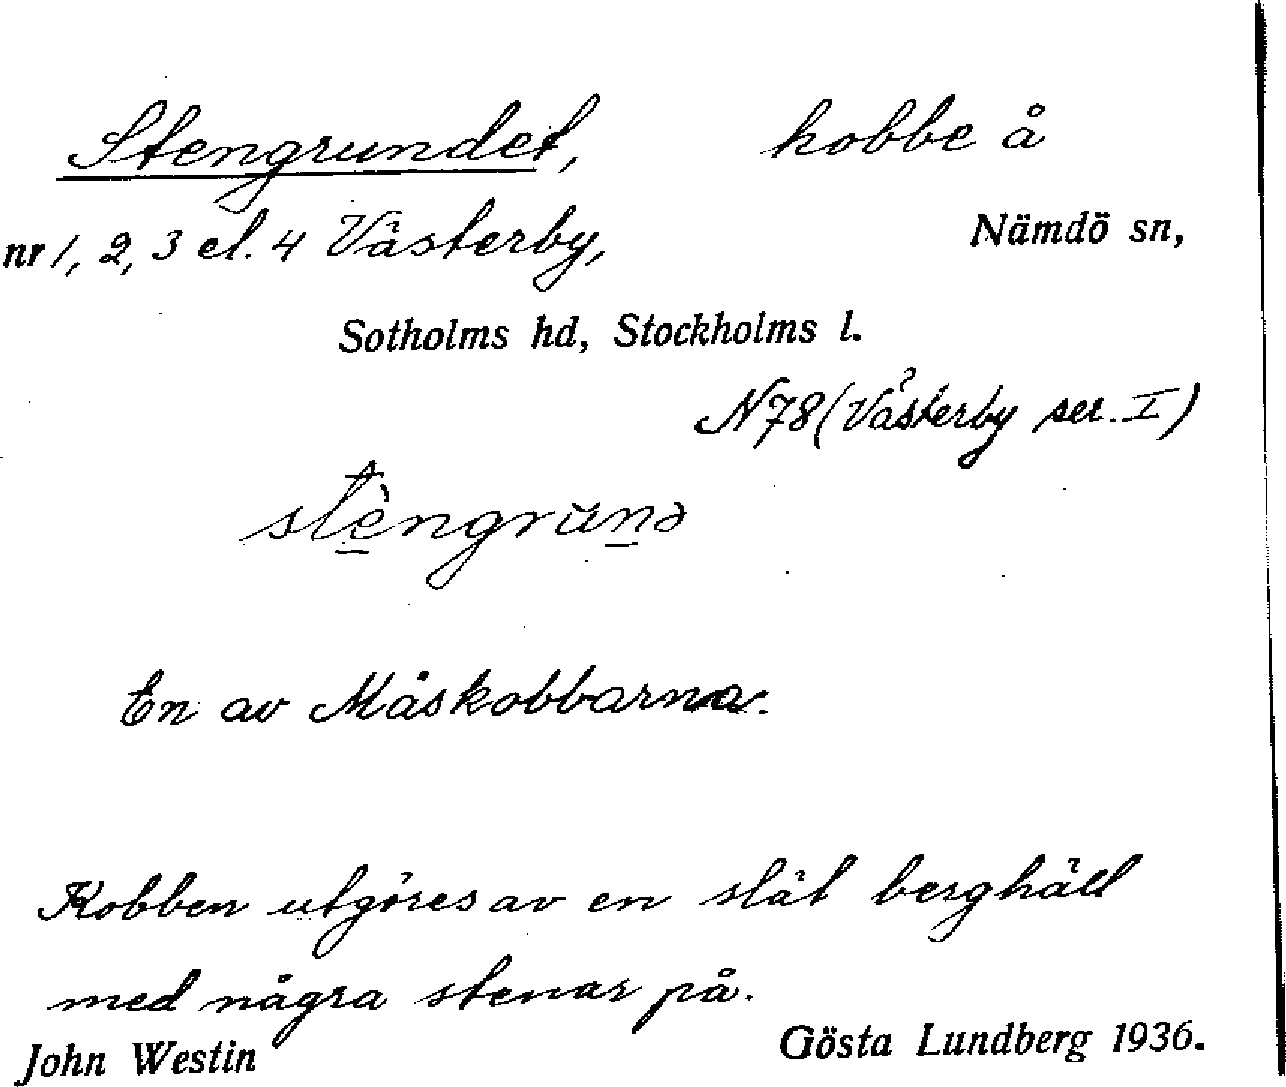 Stengrundet, kobbe å
nr 1, 2, 3 el. 4 Västerby, Nämdö sn,
Sotholms hd, Stockholms l.
N78 (Västerby ser. I)
stèngrŭnə
En av Måskobbarna.
Kobben utgöres av en slät berghäll
med några stenar på.
John Westin Gösta Lundberg 1936.